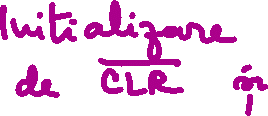 Initializare
de CLR și